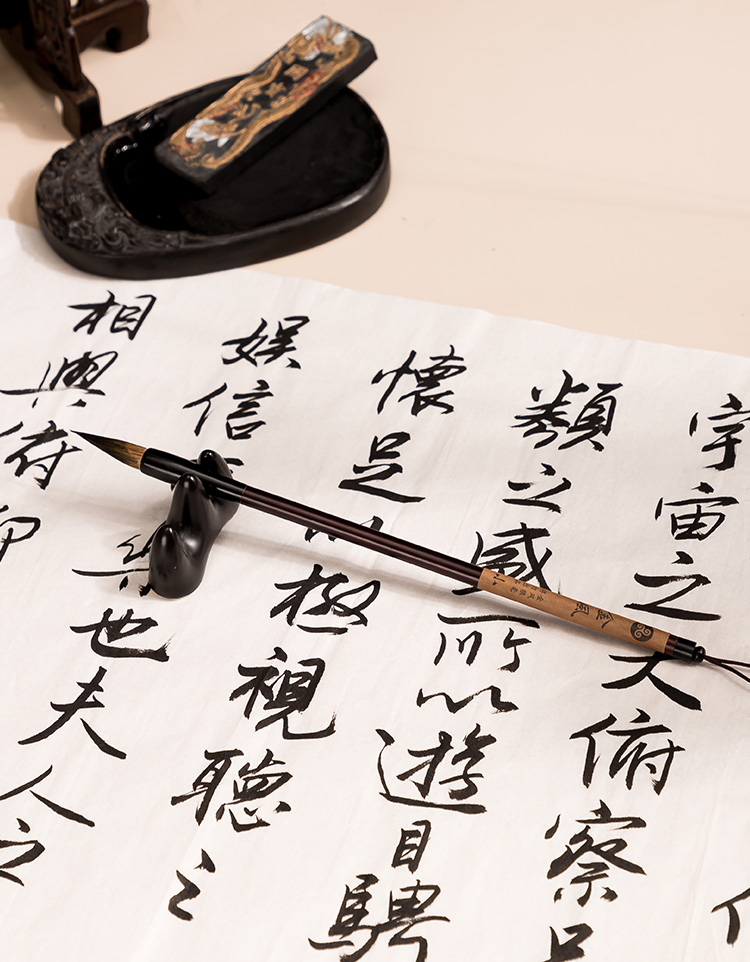 宇宙之大俯察
類之盛所以遊目騁
懷足以極視聽之
娛信樂也夫人之
相與俯仰